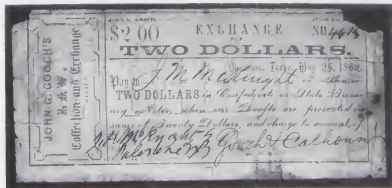 JOHN G. GOOCH'S
LAW,
Collection and Exchange
$2 00 EXCHANGE No. 4418
TWO DOLLARS.
Texas, 25, 1862.
Pay to J. M. McKnight or Bearer
TWO DOLLARS in Confederate or State Treasury
Notes, when our Drafts are presented in
sums of Twenty Dollars, and charge to account of
Gooch & Calhoun